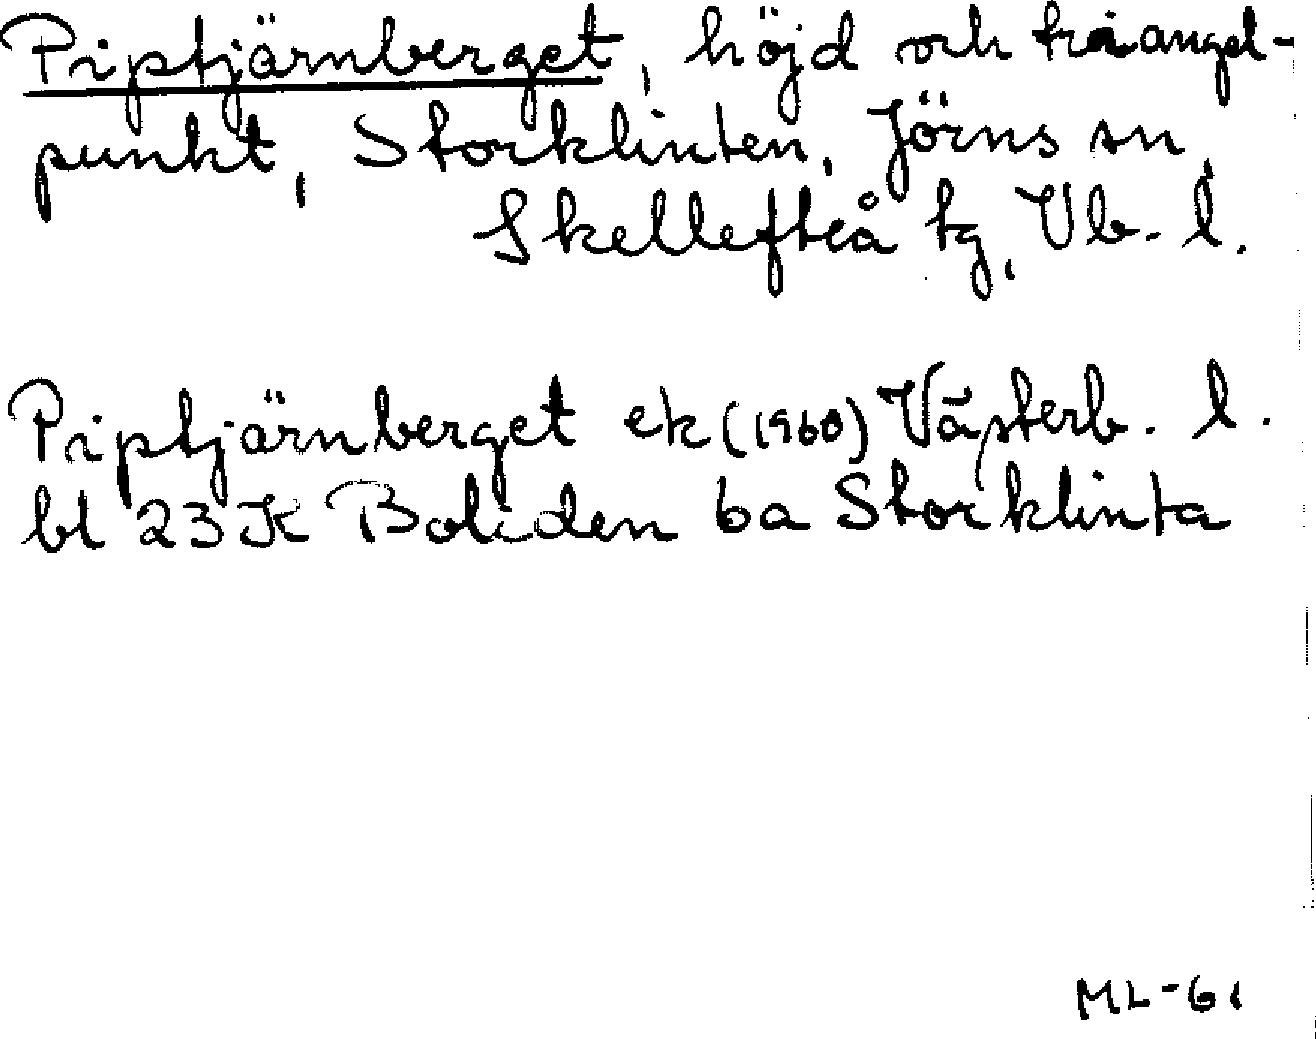 Piptjärnberget, höjd och triangel-
punkt, Storklinten, Jörns sn,
Skellefteå tg, Vb. l.
Piptjärnberget ek (1960) Västerb. l.
bl 23 K Boliden 6a Storklinta
ML-61